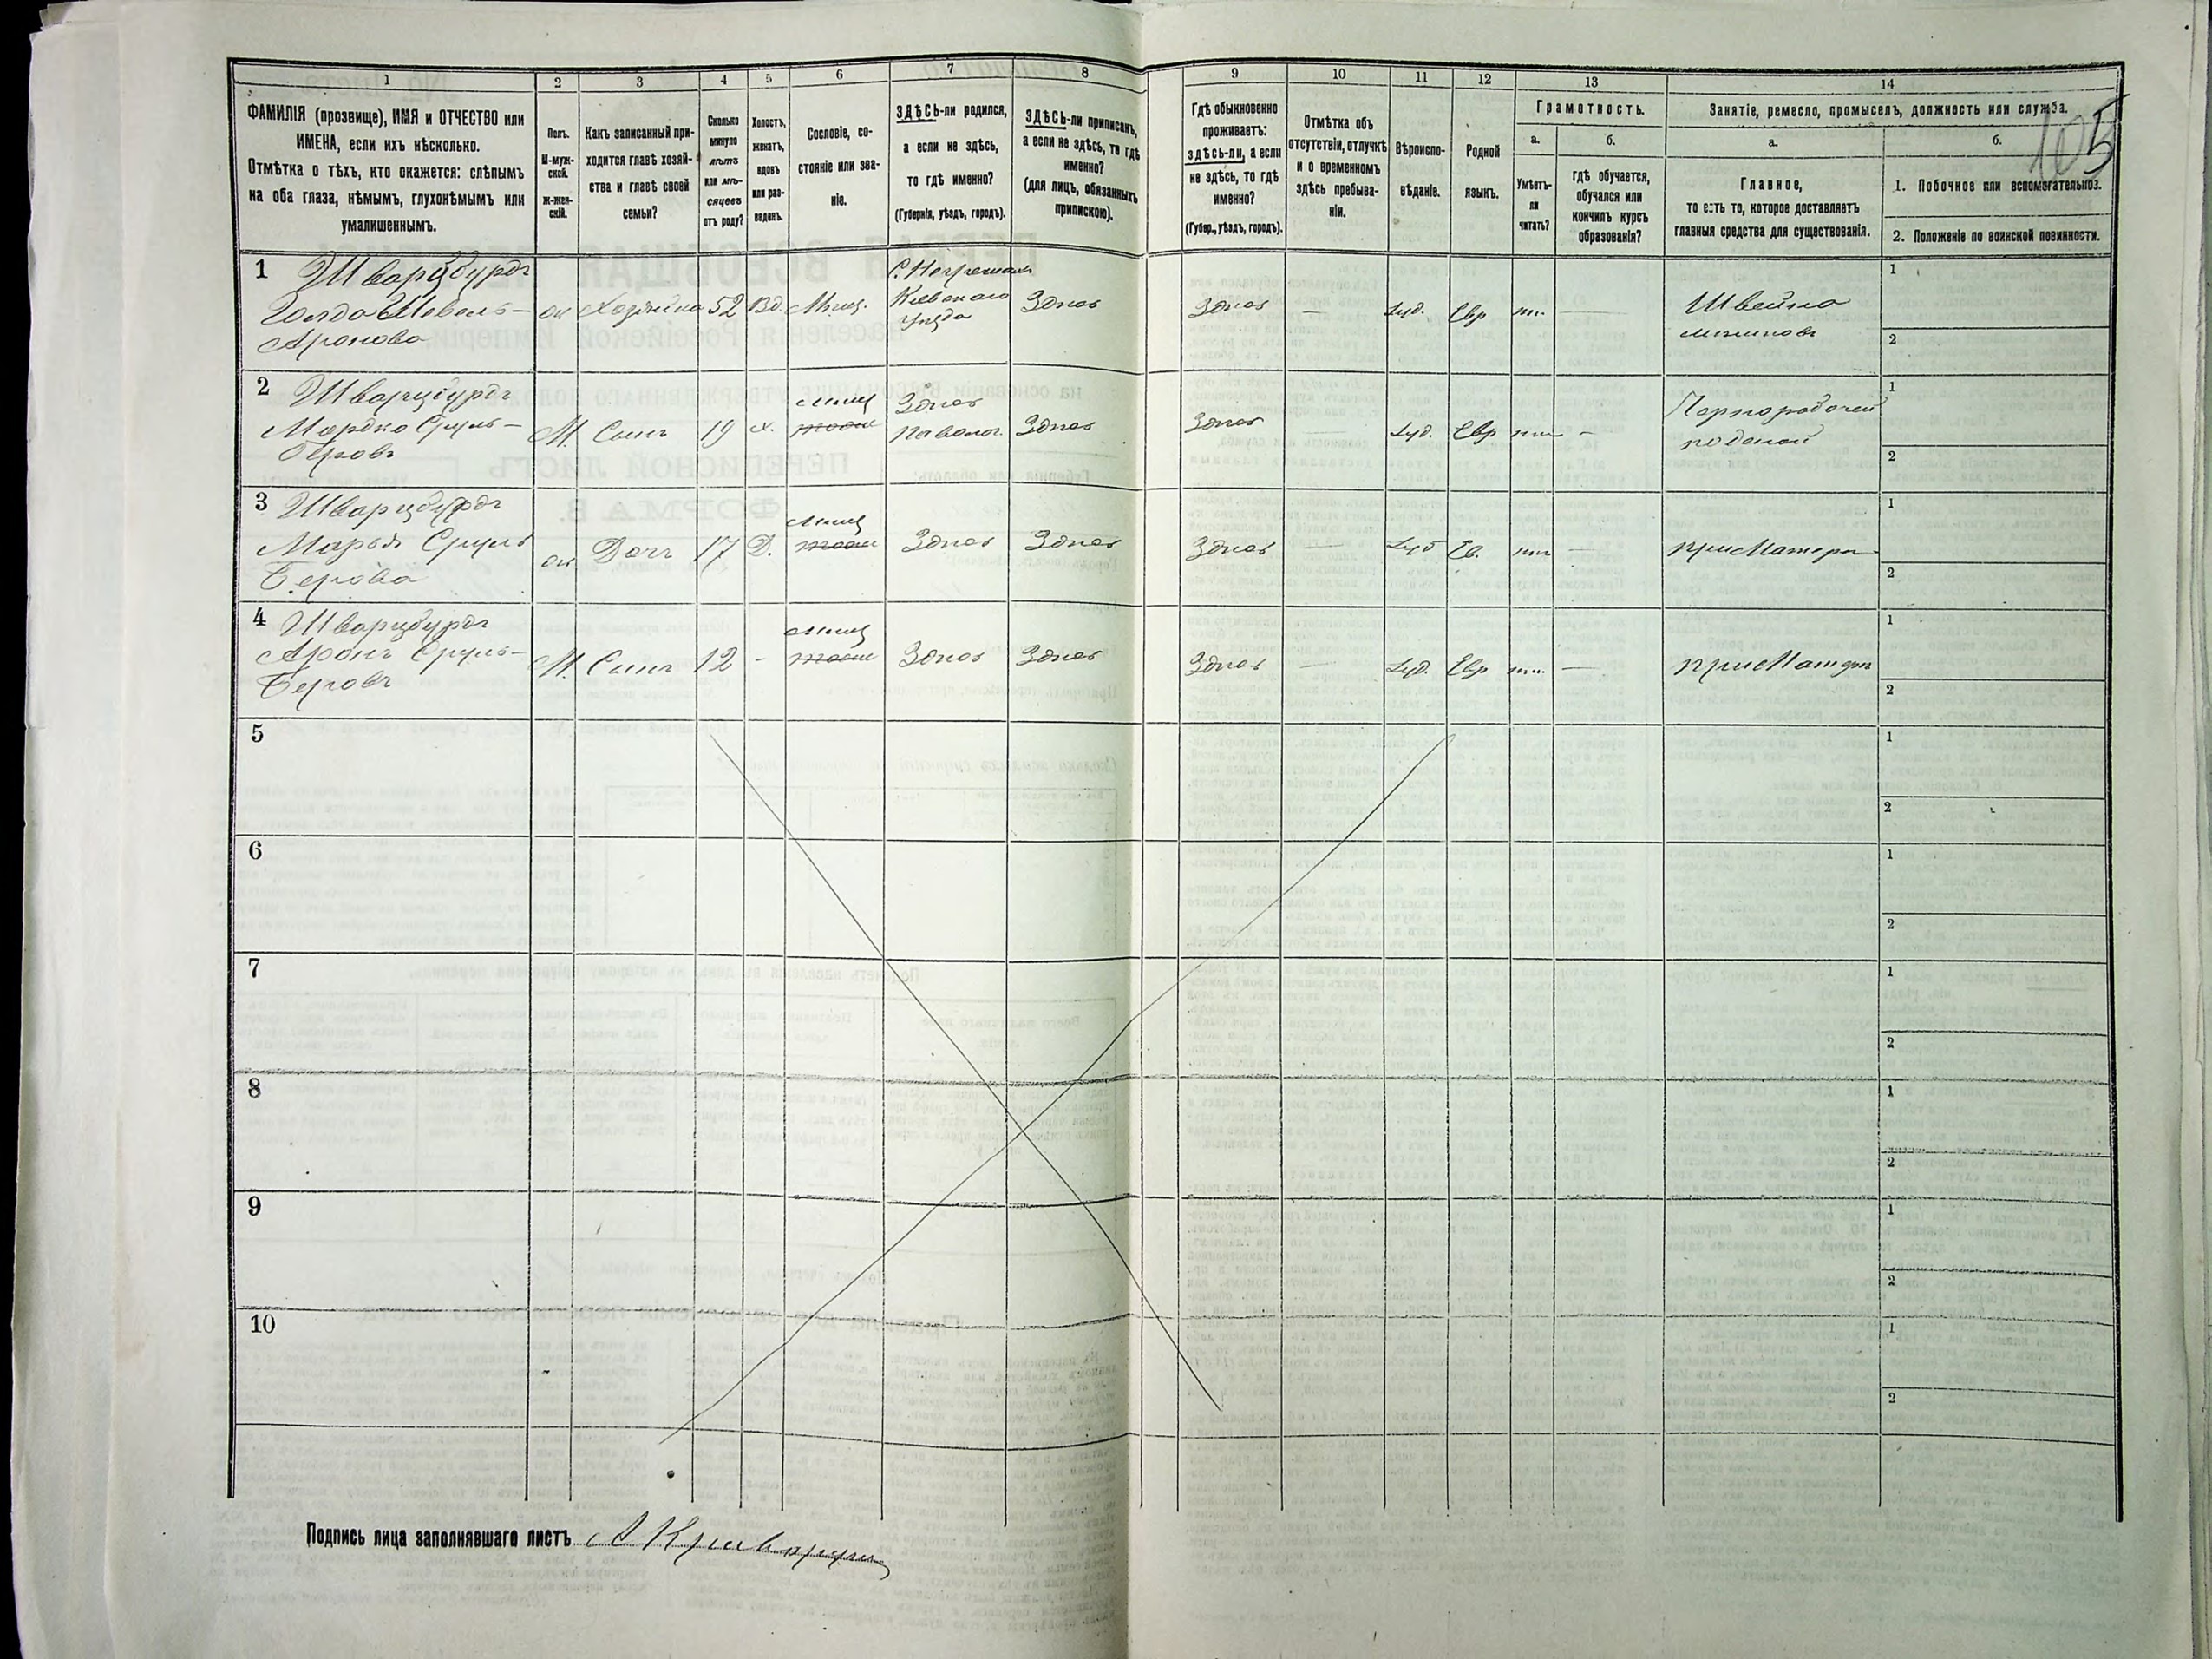 1 2 3 4 5 6 7 8 9 10 11 12 13 14
ФАМИЛІЯ (прозвище), ИМЯ и ОТЧЕСТВО или
ИМЕНА, если ихъ нѣсколько.
Отмѣтка о тѣхъ, кто окажется: слѣпымъ
на оба глаза, нѣмымъ, глухонѣмымъ или
умалишеннымъ.
Полъ.
М-муж-
ской.
Ж-жен-
скій.
Какъ записанный при-
ходится главѣ хозяй-
ства и главѣ своей
семьи?
Сколько
минуло
лѣтъ
или мѣ-
сяцевъ
отъ роду?
Холостъ,
женатъ,
вдовъ
или раз-
веденъ.
Сословіе, со-
стояніе или зва-
ніе.
ЗДѢСЬ-ли родился,
а если не здѣсь,
то гдѣ именно?
(Губернія, уѣздъ, городъ).
ЗДѢСЬ-ли приписанъ,
а если не здѣсь, то гдѣ
именно?
(для лицъ, обязанныхъ
припискою).
Гдѣ обыкновенно
проживаетъ:
здѣсь-ли, а если
не здѣсь, то гдѣ
именно?
(Губер., уѣздъ, городъ).
Отмѣтка объ
отсутствіи, отлучкѣ
и о временномъ
здѣсь пребыва-
ніи.
Вѣроиспо-
вѣданіе.
Родной
языкъ.
Грамотность.
а.
Умѣетъ-
ли
читать?
б.
гдѣ обучается,
обучался или
кончилъ курсъ
образованія?
Занятіе, ремесло, промыселъ, должность или служба.
а.
Главное,
то есть то, которое доставляетъ
главныя средства для существованія.
б.
1. Побочное или вспомогательное.
2. Положеніе по воинской повинности.
105
1 Шварцбурдъ
Аронова
Хозяйка 52 Вд. Мѣщ.
Кіевскаго
уѣзда
Здѣсь Здѣсь — Іуд. Евр —
Швейка
1
2
2 Шварцбурдъ
Мордко Сруль-
Беровъ
М. Сынъ 19 х. Мѣщ
Здѣсь
Паволоч. Здѣсь Здѣсь — Іуд. Евр -
1
2
3 Шварцбурдъ
Марья Сруль
Берова
Дочь 17 Д. Мѣщ Здѣсь Здѣсь Здѣсь — Іуд Ев. — при Матери
1
2
4 Шварцбурдъ
Аронъ Сруль-
Беровъ
М. Сынъ 12 - Мѣщ Здѣсь Здѣсь Здѣсь — Іуд. Евр — при Матери
1
2
5
1
2
6
1
2
7
1
2
8
1
2
9
1
2
10
1
2
Подпись лица заполнявшаго листъ